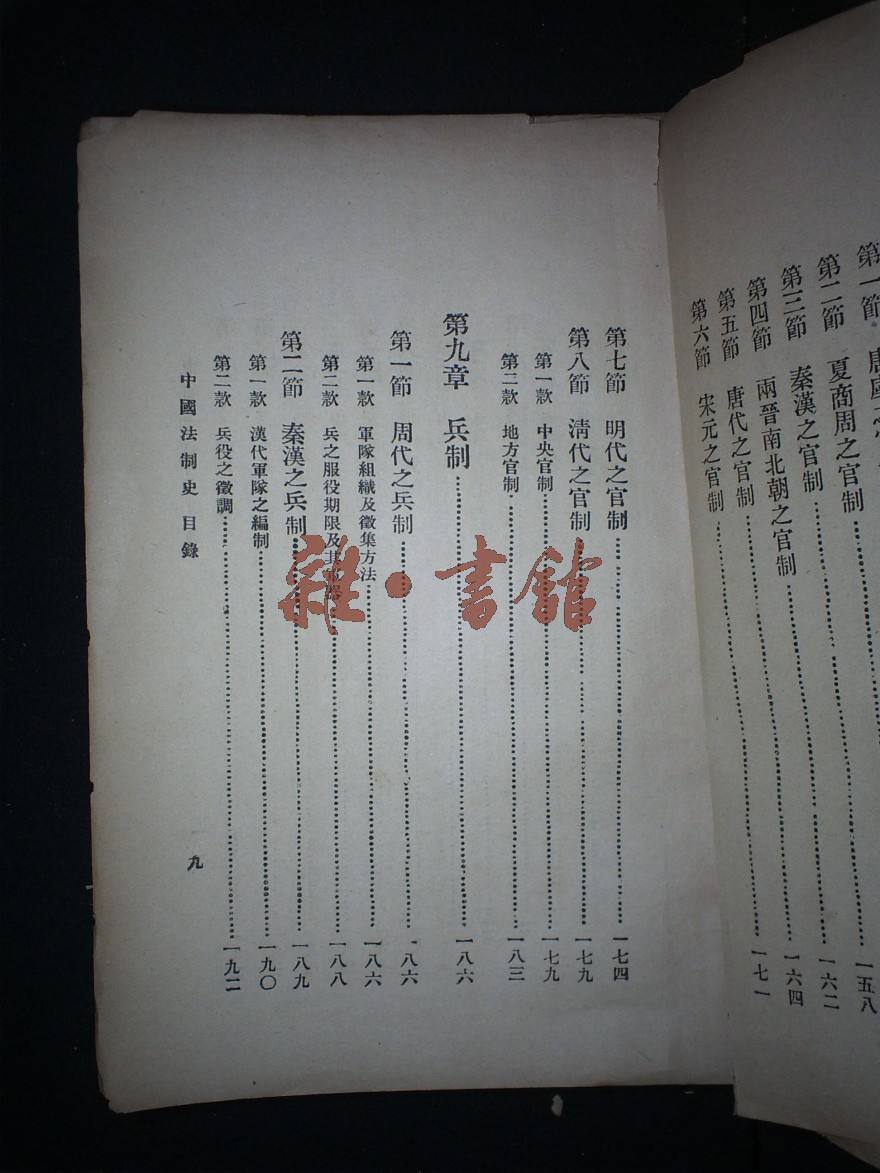 第一節 唐虞之
第二節 夏商周之官制
第三節 秦漢之官制 一五八
第四節 兩晉南北朝之官制 一六二
第五節 唐代之官制 一六四
第六節 宋元之官制 一七一
第七節 明代之官制 一七四
第八節 淸代之官制 一七九
第一款 中央官制 一七九
第二款 地方官制 一八三
第九章 兵制 一八六
第一節 周代之兵制 一八六
第一款 軍隊組織及徵集方法 一八六
第二款 兵之服役期限及其器 一八八
第二節 秦漢之兵制 一八九
第一款 漢代軍隊之編制 一九〇
第二款 兵役之徵調 一九二
中國法制史 目錄 九
雜·書館